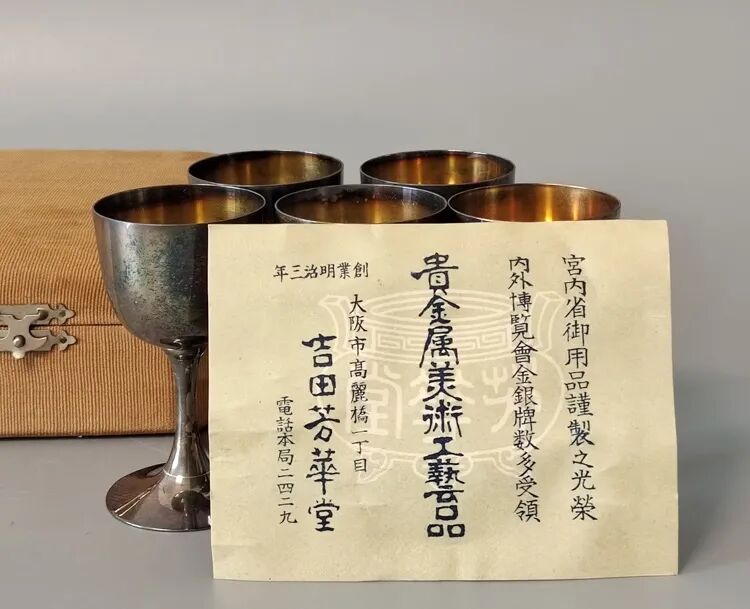 宮内省御用品謹製之光榮
内外博覧會金銀牌数多受領
貴金属美術工藝品
創業明治三年
大阪市髙麗橋一丁目
吉田芳華堂
電話本局二四二九
芳華堂